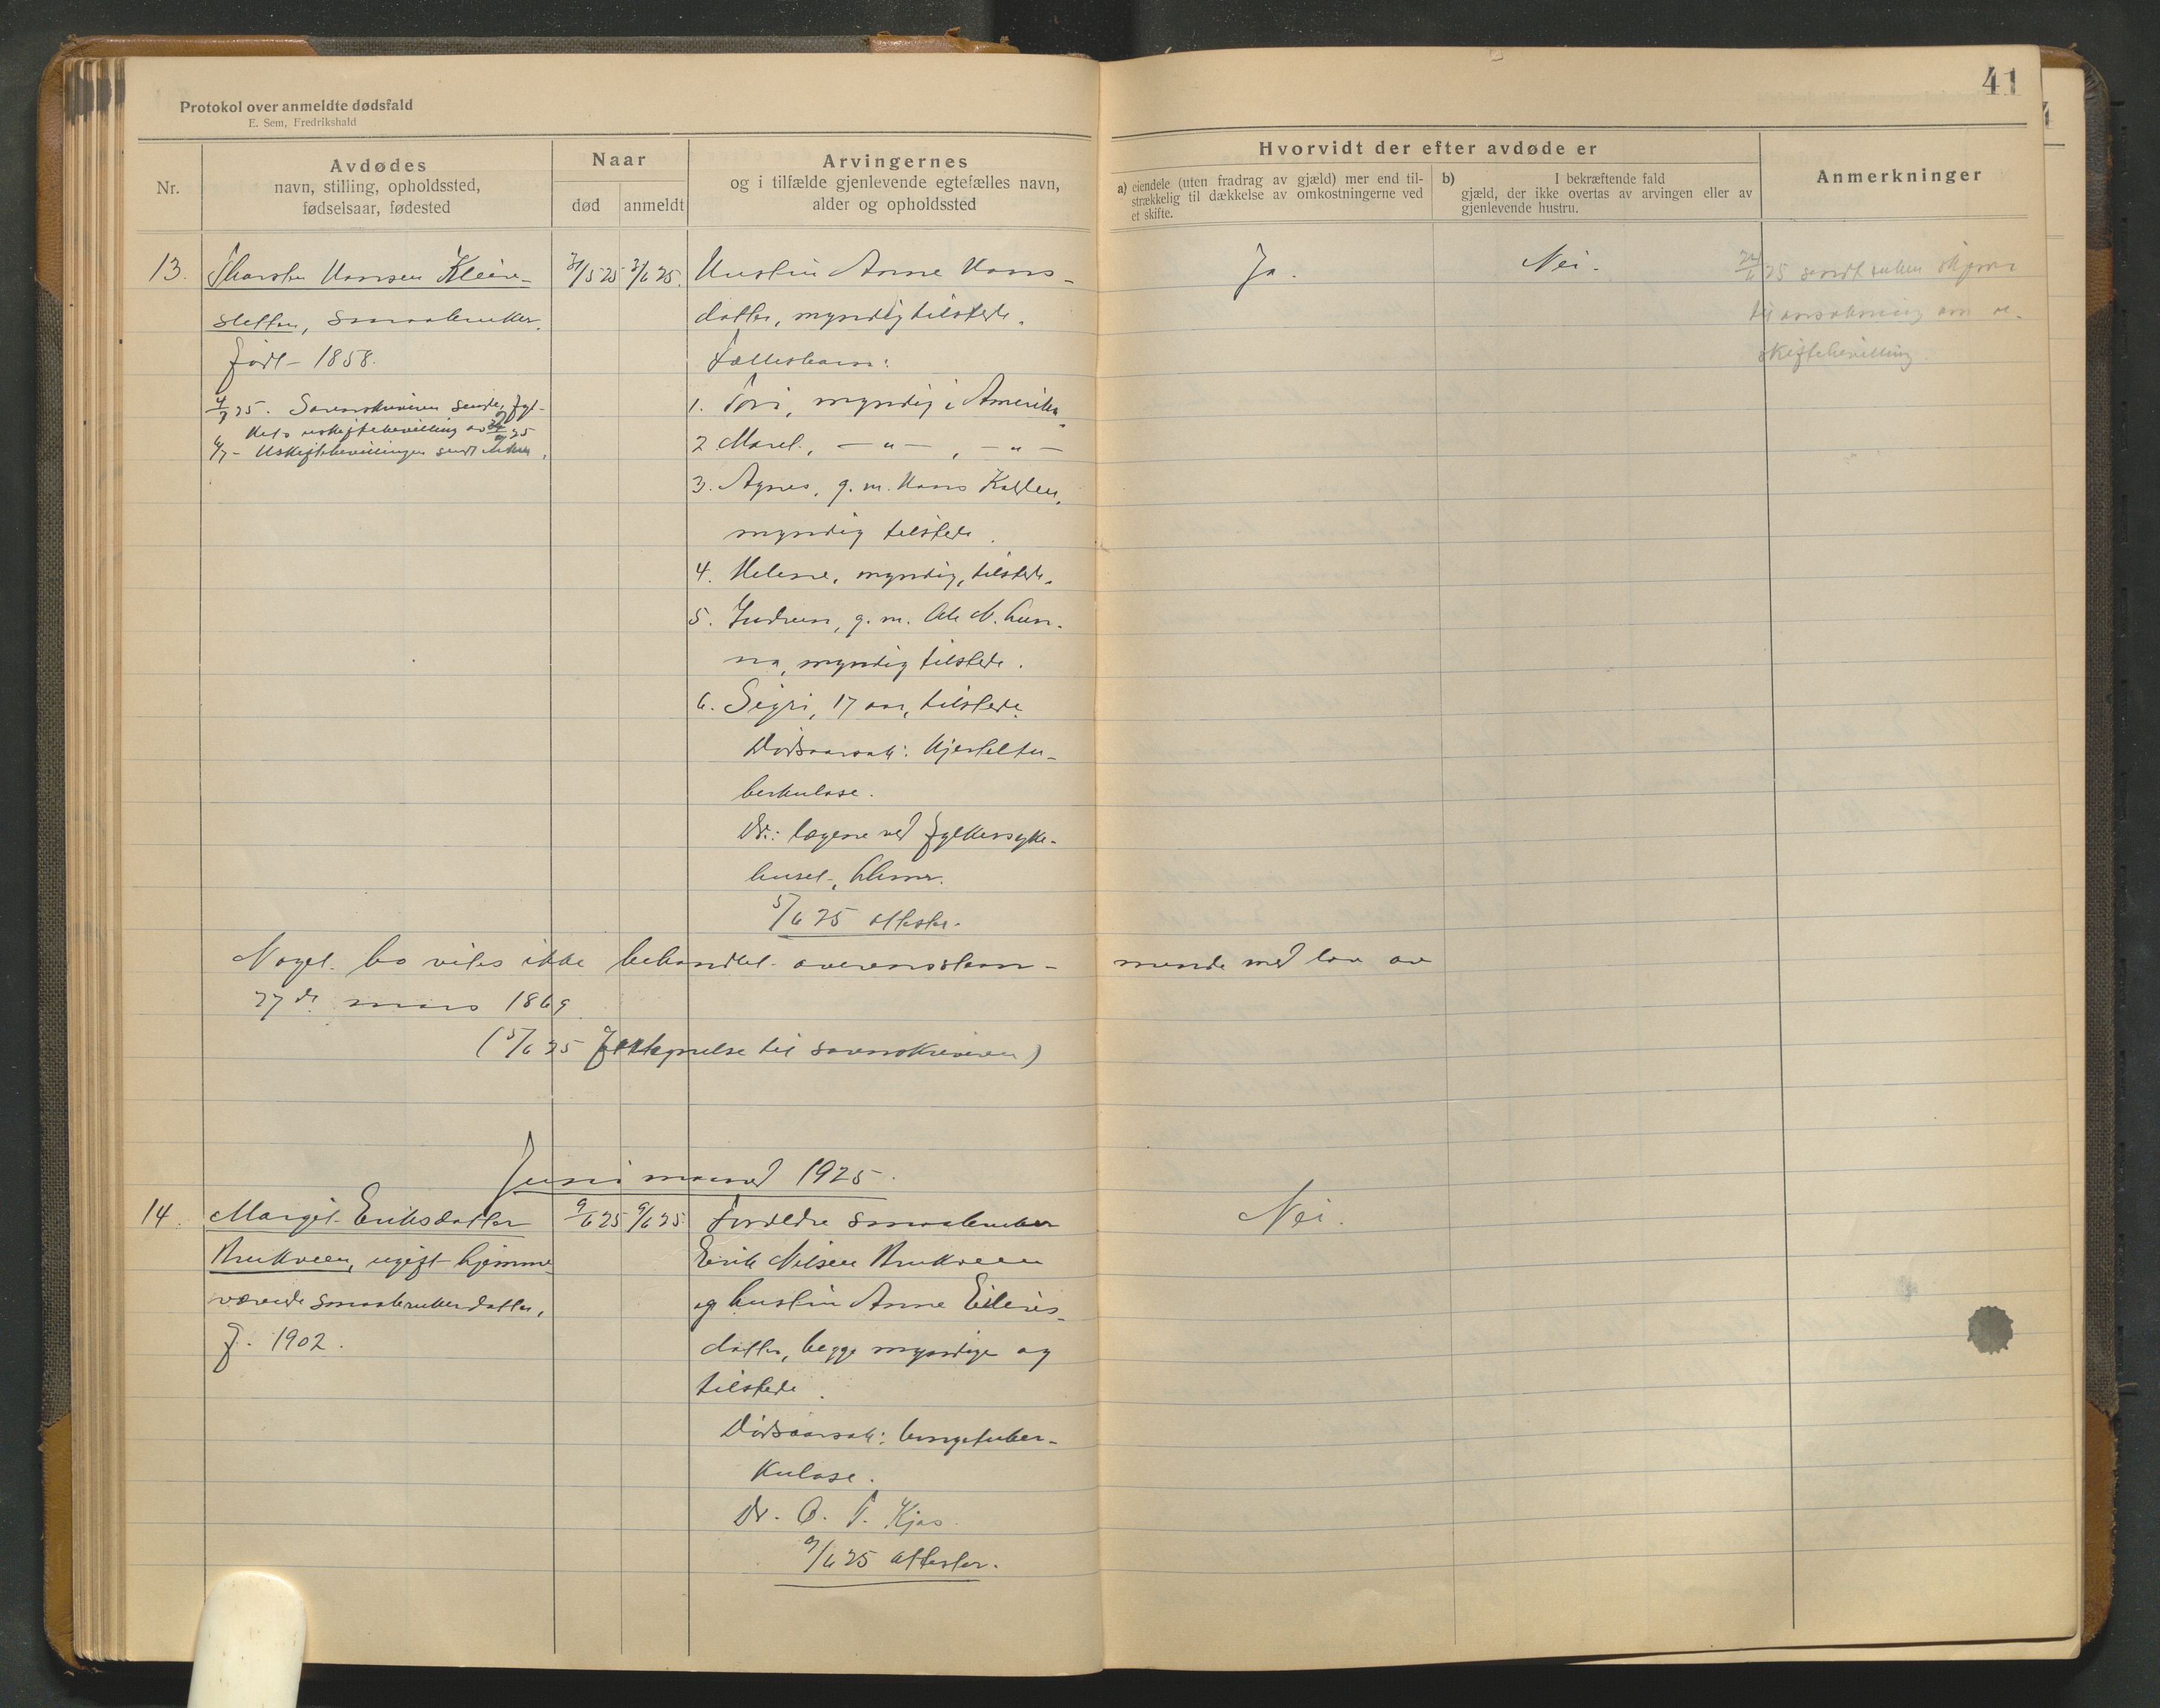 41
Protokol over anmeldte dødsfald
E. Sem, Fredrikshald
Nr.
Avdødes
navn, stilling, opholdssted,
fødselsaar, fødested
Naar
død
anmeldt
Arvingernes
og i tilfælde gjenlevende egtefælles navn,
alder og opholdssted
Hvorvidt der efter avdøde er
a) eiendele (uten fradrag av gjæld) mer end til-
strækkelig til dækkelse av omkostningerne ved
et skifte.
b) I bekræftende fald
gjæld, der ikke overtas av arvingen eller av
gjenlevende hustru.
Anmerkninger
13. Thorsten Hansen Kleive-
sletten, smaabruker.
født 1858.
4/7 25. Sorenskriveren sender fyl-
kets uskiftebevilling av
6/7 - Uskiftebevillingen sendt enken.
31/5 25
3/6 25.
Hustru Anne Hans-
datter, myndig tilstede.
Fællesbarn:
1. Tori, myndig i Amerika.
2. Marit, — " — , — " —
3. Agnes, g. m. Hans Kolden,
myndig tilstede.
4. Helene, myndig, tilstede.
5. Gudrun, g. m. Ole N. Gun-
na, myndig tilstede.
6. Sigri, 17 aar, tilstede.
Dødsaarsak: Kjerteltu-
berkulose.
Dr.: lægene ved fylkessyke-
huset,
5/6 25 attester.
Ja.
Nei.
25 sendt enken skjema
til ansøkning om u-
skiftebevilling.
Noget bo vites ikke behandlet overensstem-
mende med lov av
27de mars 1869.
(5/6 25 til sorenskriveren)
Juni maaned 1925.
14. Margit Eriksdatter
Brukveen, ugift hjemme-
værende smaabrukerdatter,
f. 1902.
9/6 25
9/6 25.
Forældre smaabruker
Erik Nilsen Brukveen
og hustru Anne Eilevs-
datter, begge myndige og
tilstede.
Dødsaarsak: lungetuber-
kulose.
Dr. O. T. Kjos.
9/6 25 attester.
Nei.